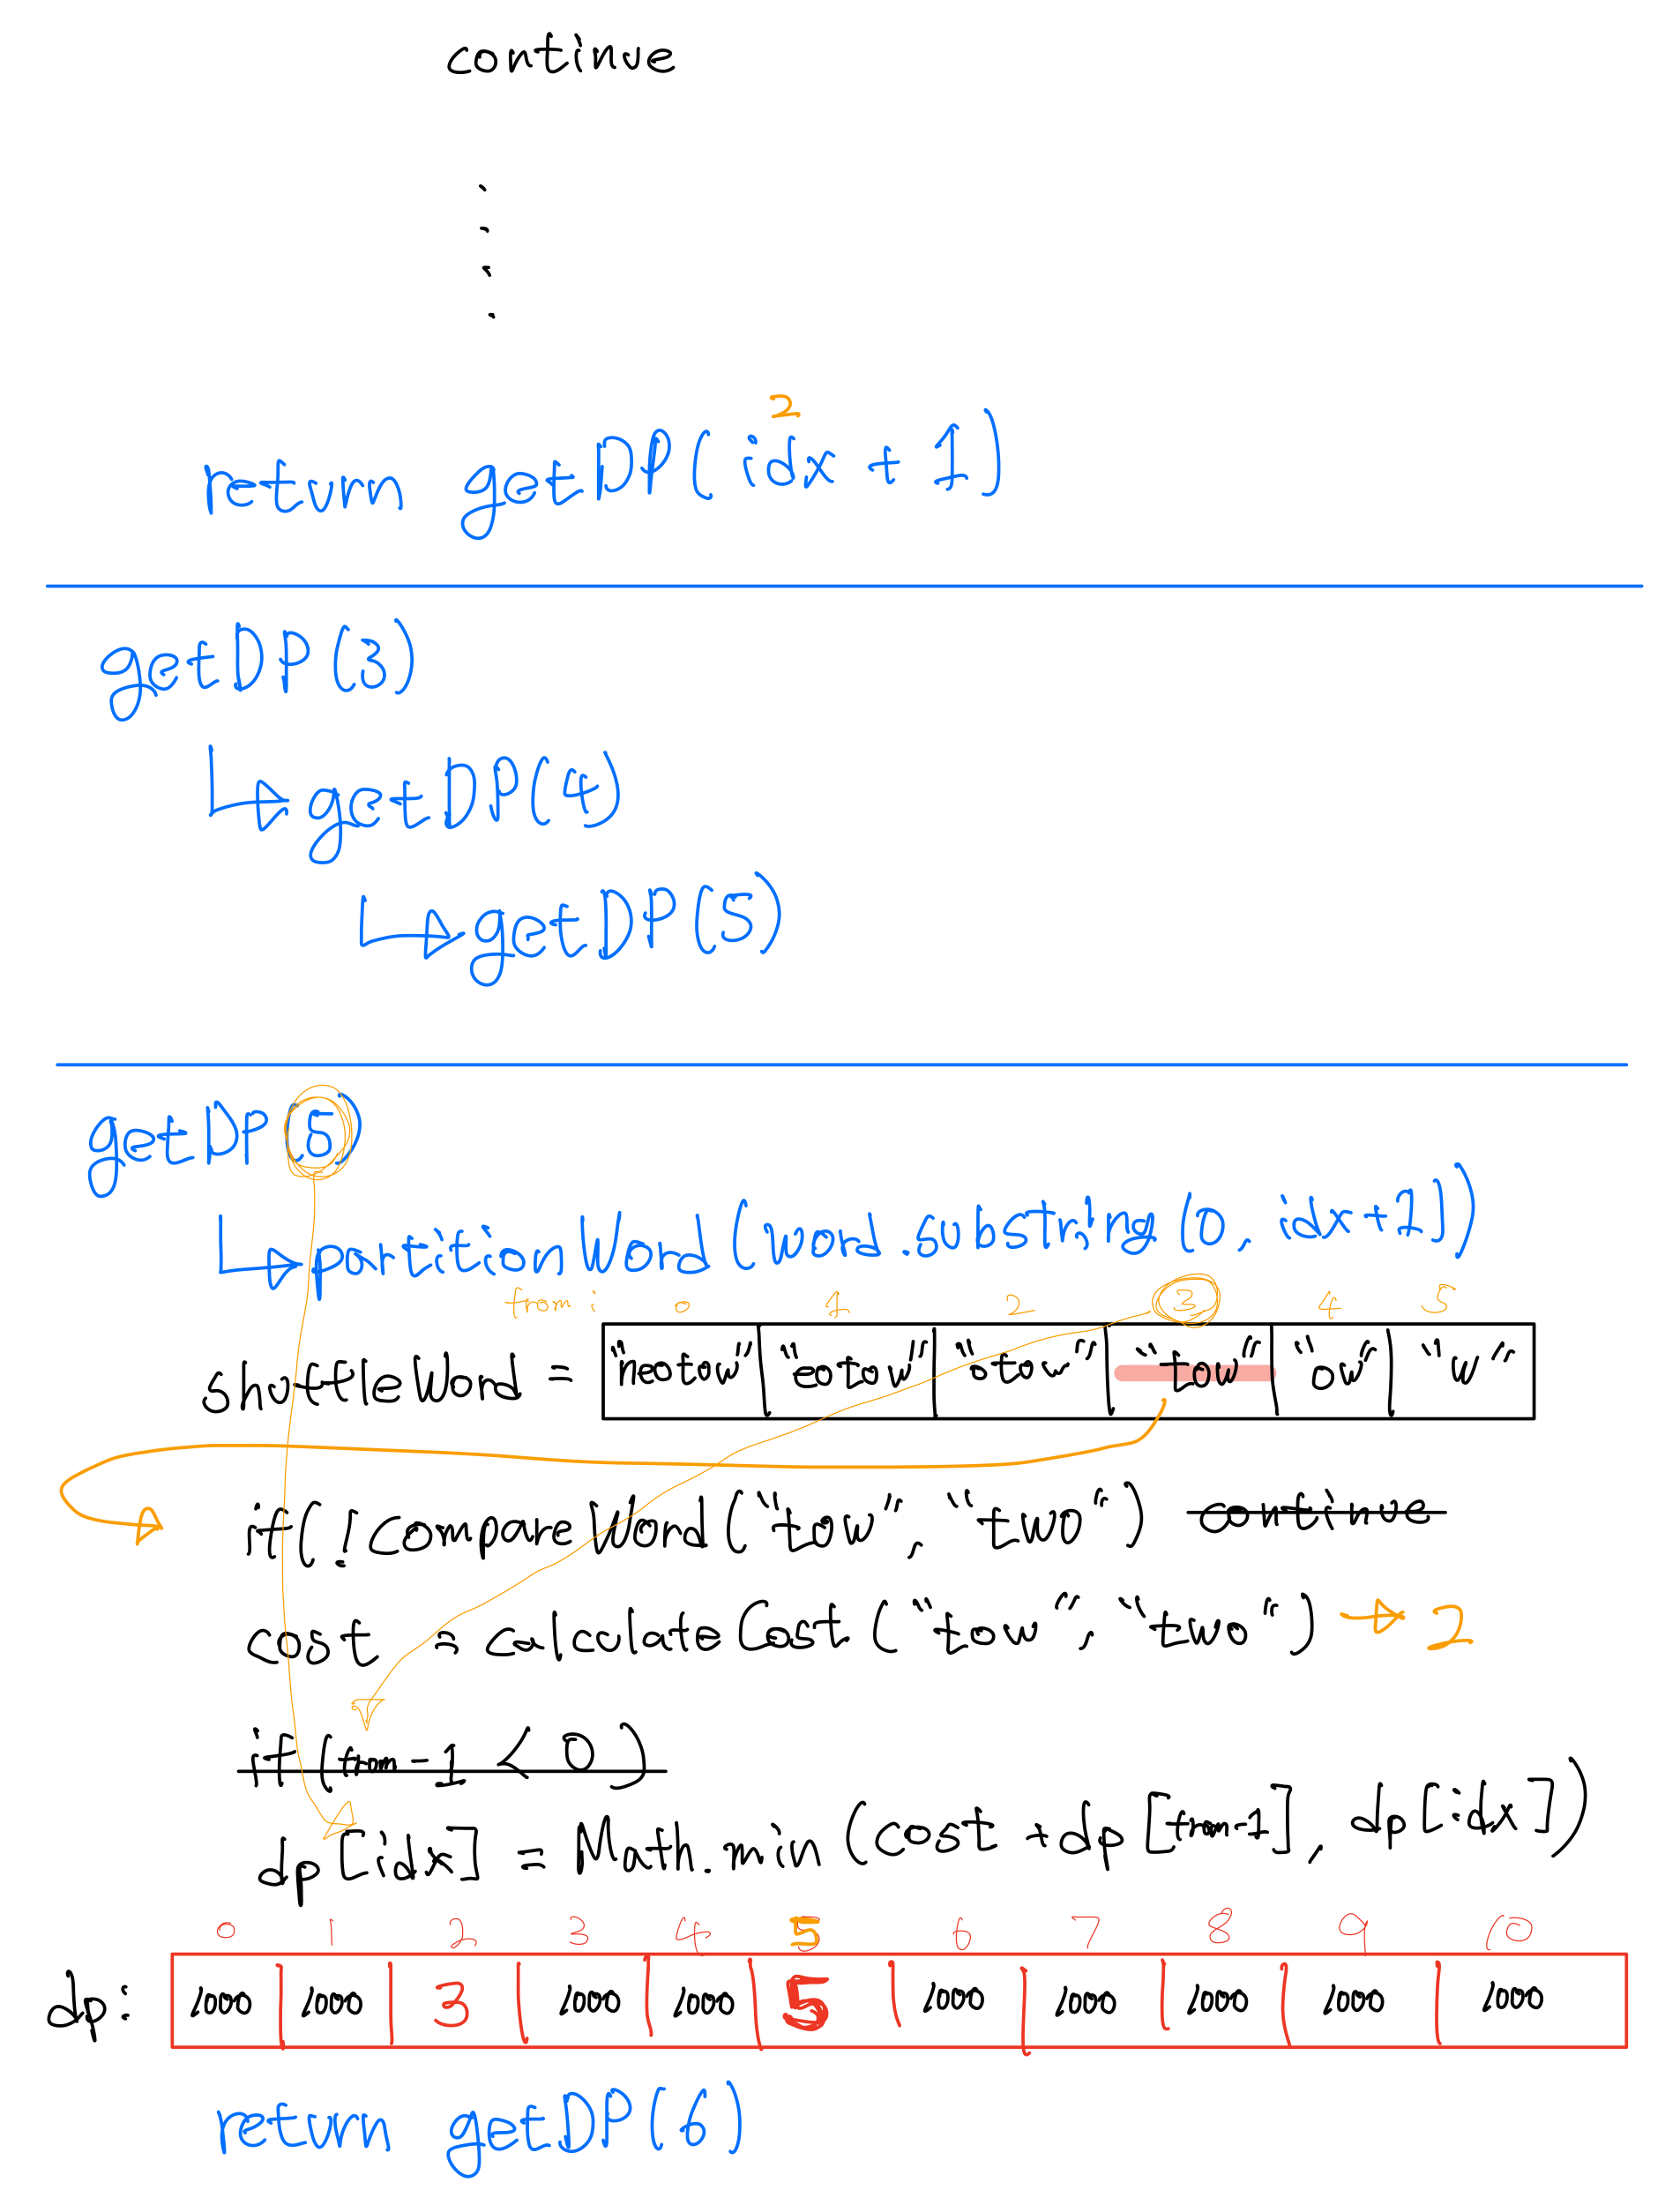 continue
2
return getDP(idx + 1)
getDP(3)
getDP(4)
getDP(5)
getDP(5)
partitionWord(word.substring(0, idx+1))
from i 0 1 2 3 4 5
shuffleWord = "neotow" "eotow" "otow" "tow" "ow" "w"
if(!compareWord("tow", "two") continue
cost = calculateCost("tow", "two") → 2
if(from-1 < 0)
dp[idx] = Math.min(cost + dp[from-1], dp[idx])
0 1 2 3 4 5 6 7 8 9 10
dp: 1000 1000 3 1000 1000 5 1000 1000 1000 1000 1000
return getDP(6)